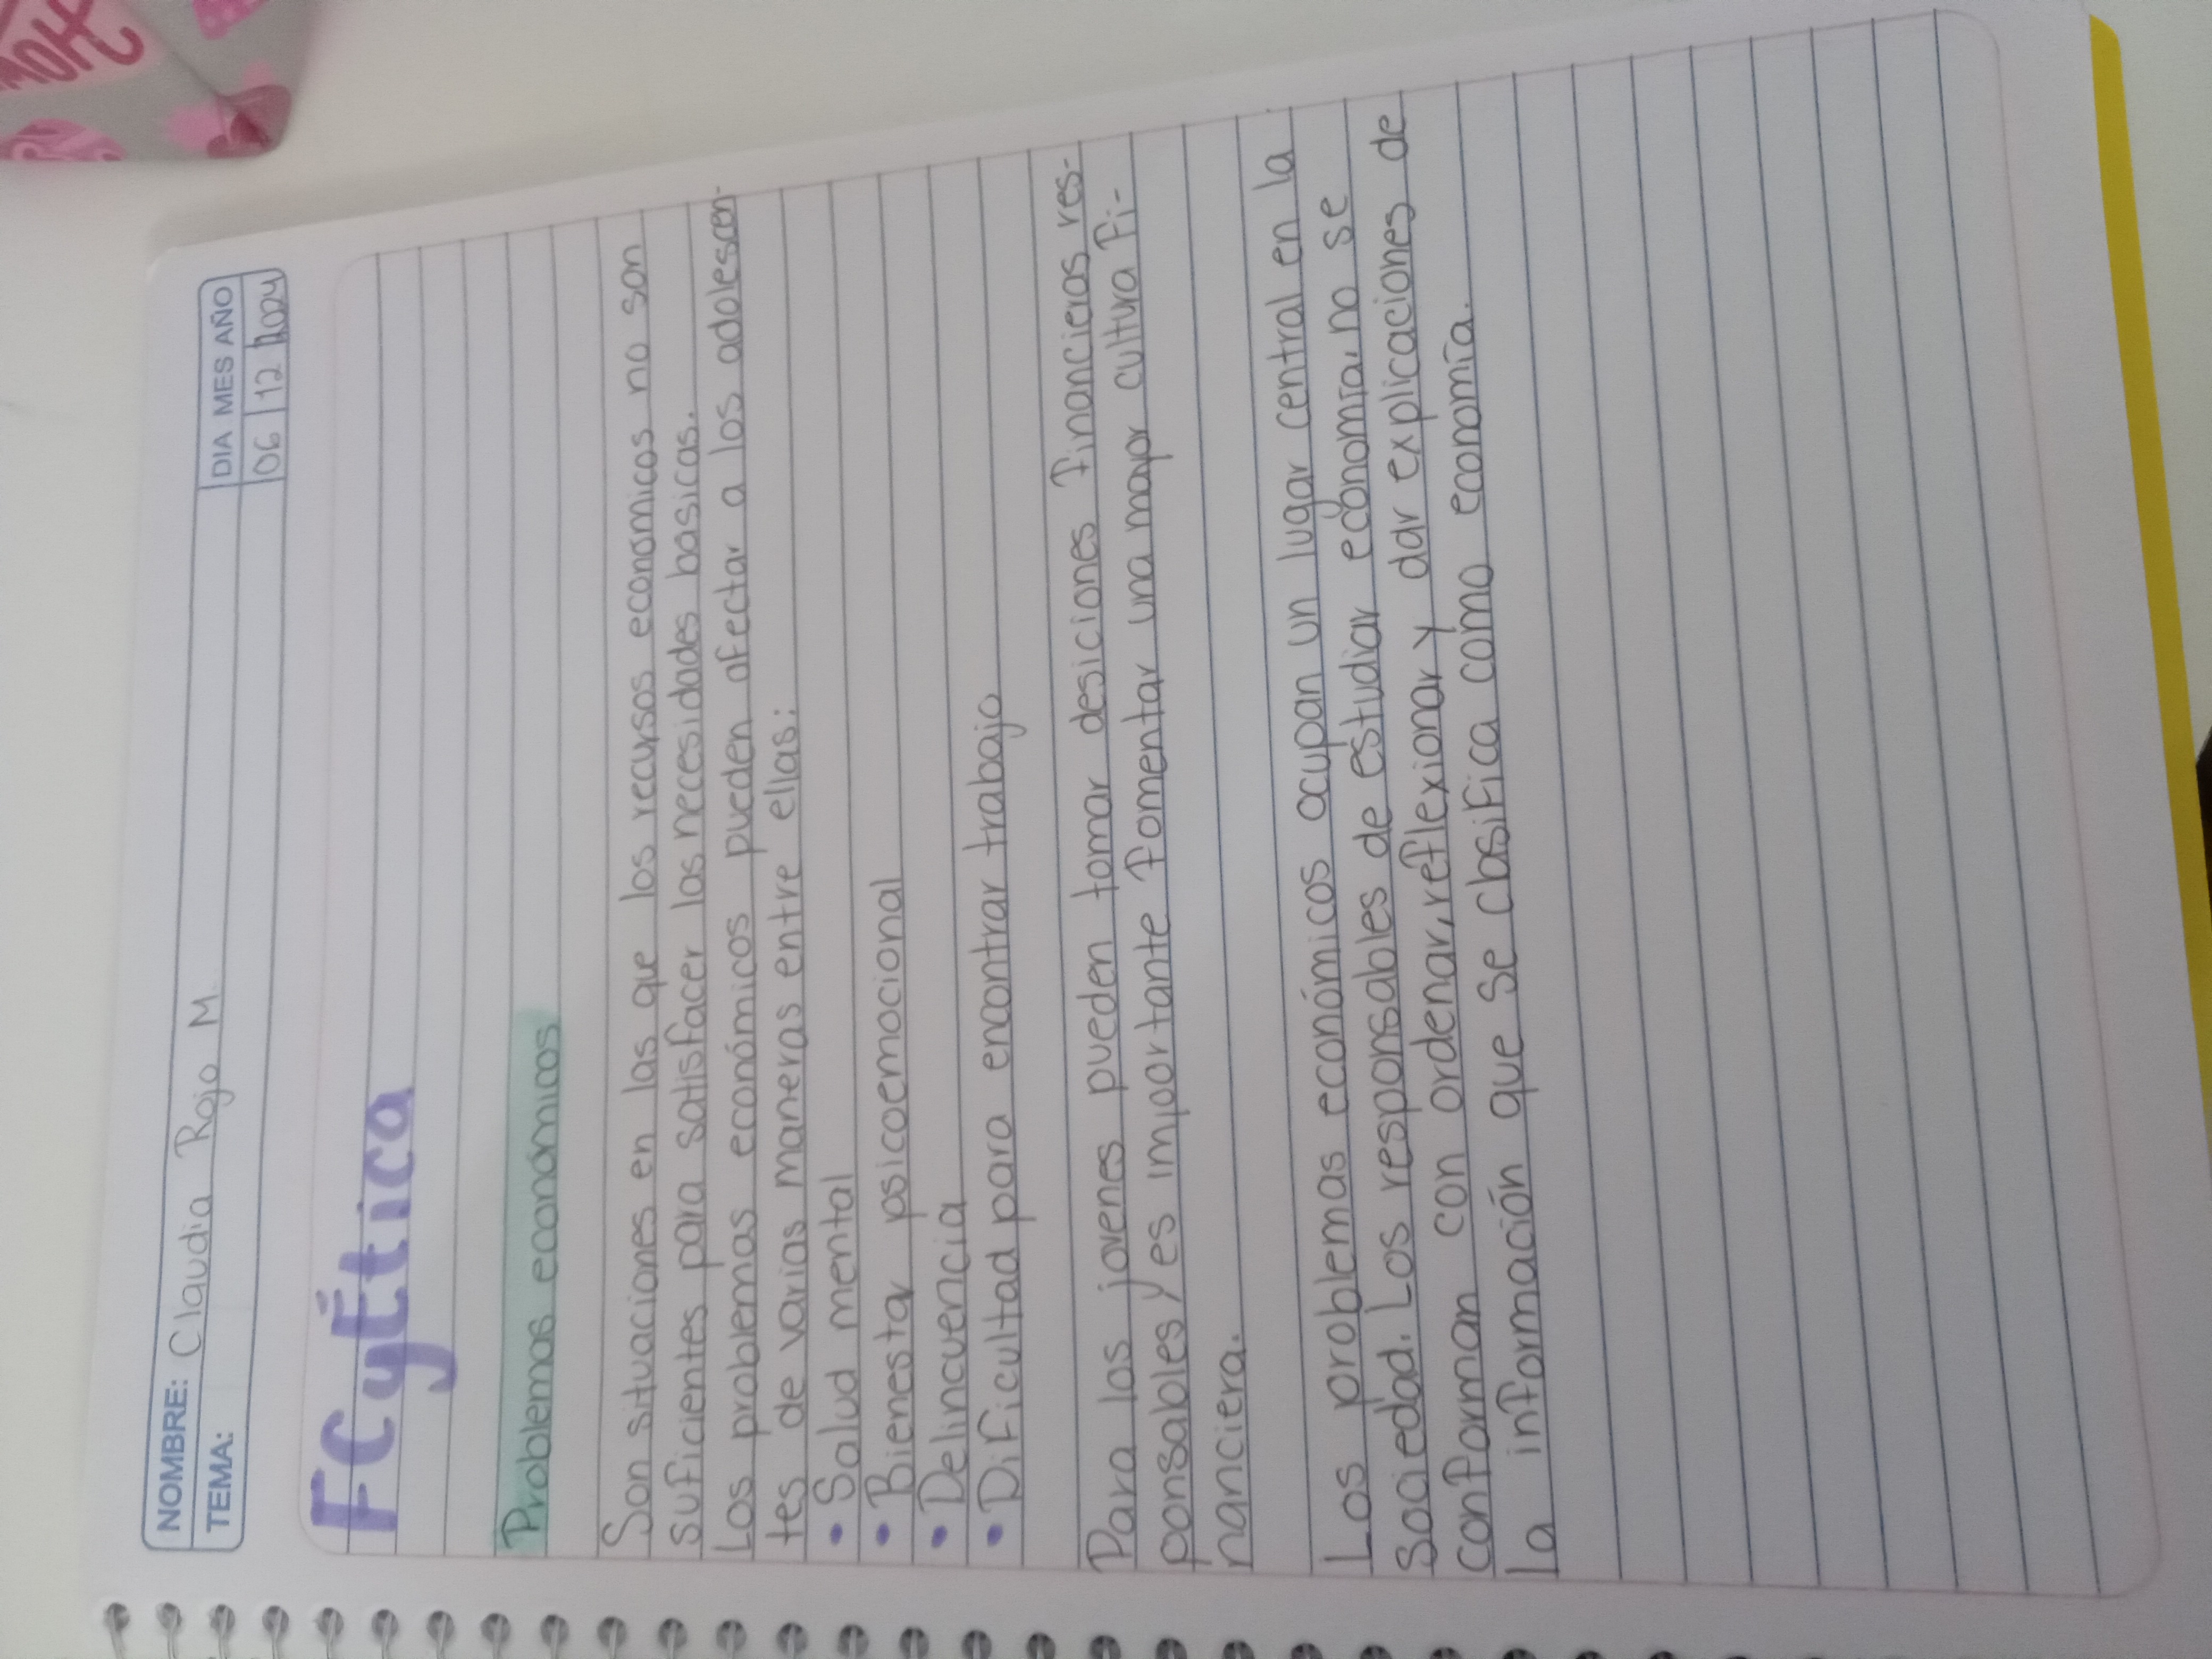 NOMBRE: Claudia Rojo M.
DIA MES AÑO
TEMA:
06 12 2024
FCyÉtica
Problemas económicos
Son situaciones en las que los recursos economicos no son
suficientes para satisfacer las necesidades basicas.
Los problemas económicos pueden afectar a los adolescen-
tes de varias maneras entre ellas:
• Salud mental
• Bienestar psicoemocional
• Delincuencia
• Dificultad para encontrar trabajo
Para los jovenes pueden tomar desiciones financieras res-
ponsables y es importante fomentar una mayor cultura fi-
nanciera.
Los problemas económicos ocupan un lugar central en la
Sociedad. Los responsables de estudiar economía, no se
conforman con ordenar, reflexionar y dar explicaciones de
la información que se clasifica como economía.